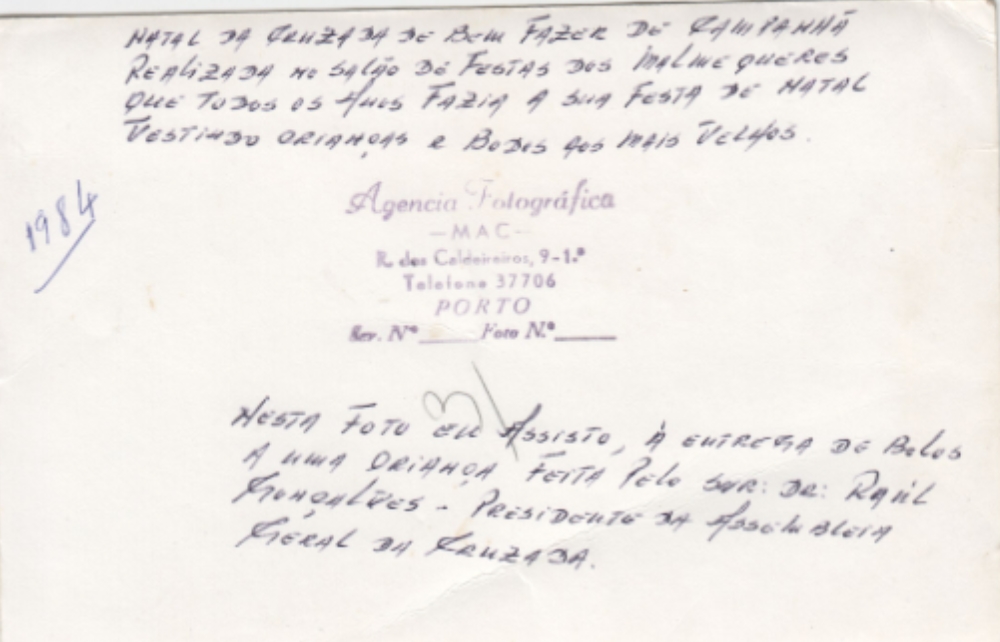 NATAL DA CRUZADA DE BEM FAZER DE CAMPANHÃ
REALIZADA NO SALÃO DE FESTAS DOS MALMEQUERES
QUE TODOS OS ANOS FAZIA A SUA FESTA DE NATAL
VESTINDO CRIANÇAS E BODOS AOS MAIS VELHOS.
1984
Agencia Fotográfica
—MAC—
R. dos Caldeireiros, 9-1.º
Telefone 37706
PORTO
Rev. Nº_____ Foto N.º_____
NESTA FOTO EU ASSISTO, À ENTREGA DE BOLOS
A UMA CRIANÇA FEITA PELO SNR: DR: RAÚL
GONÇALVES - PRESIDENTE DA ASSEMBLEIA
GERAL DA CRUZADA.